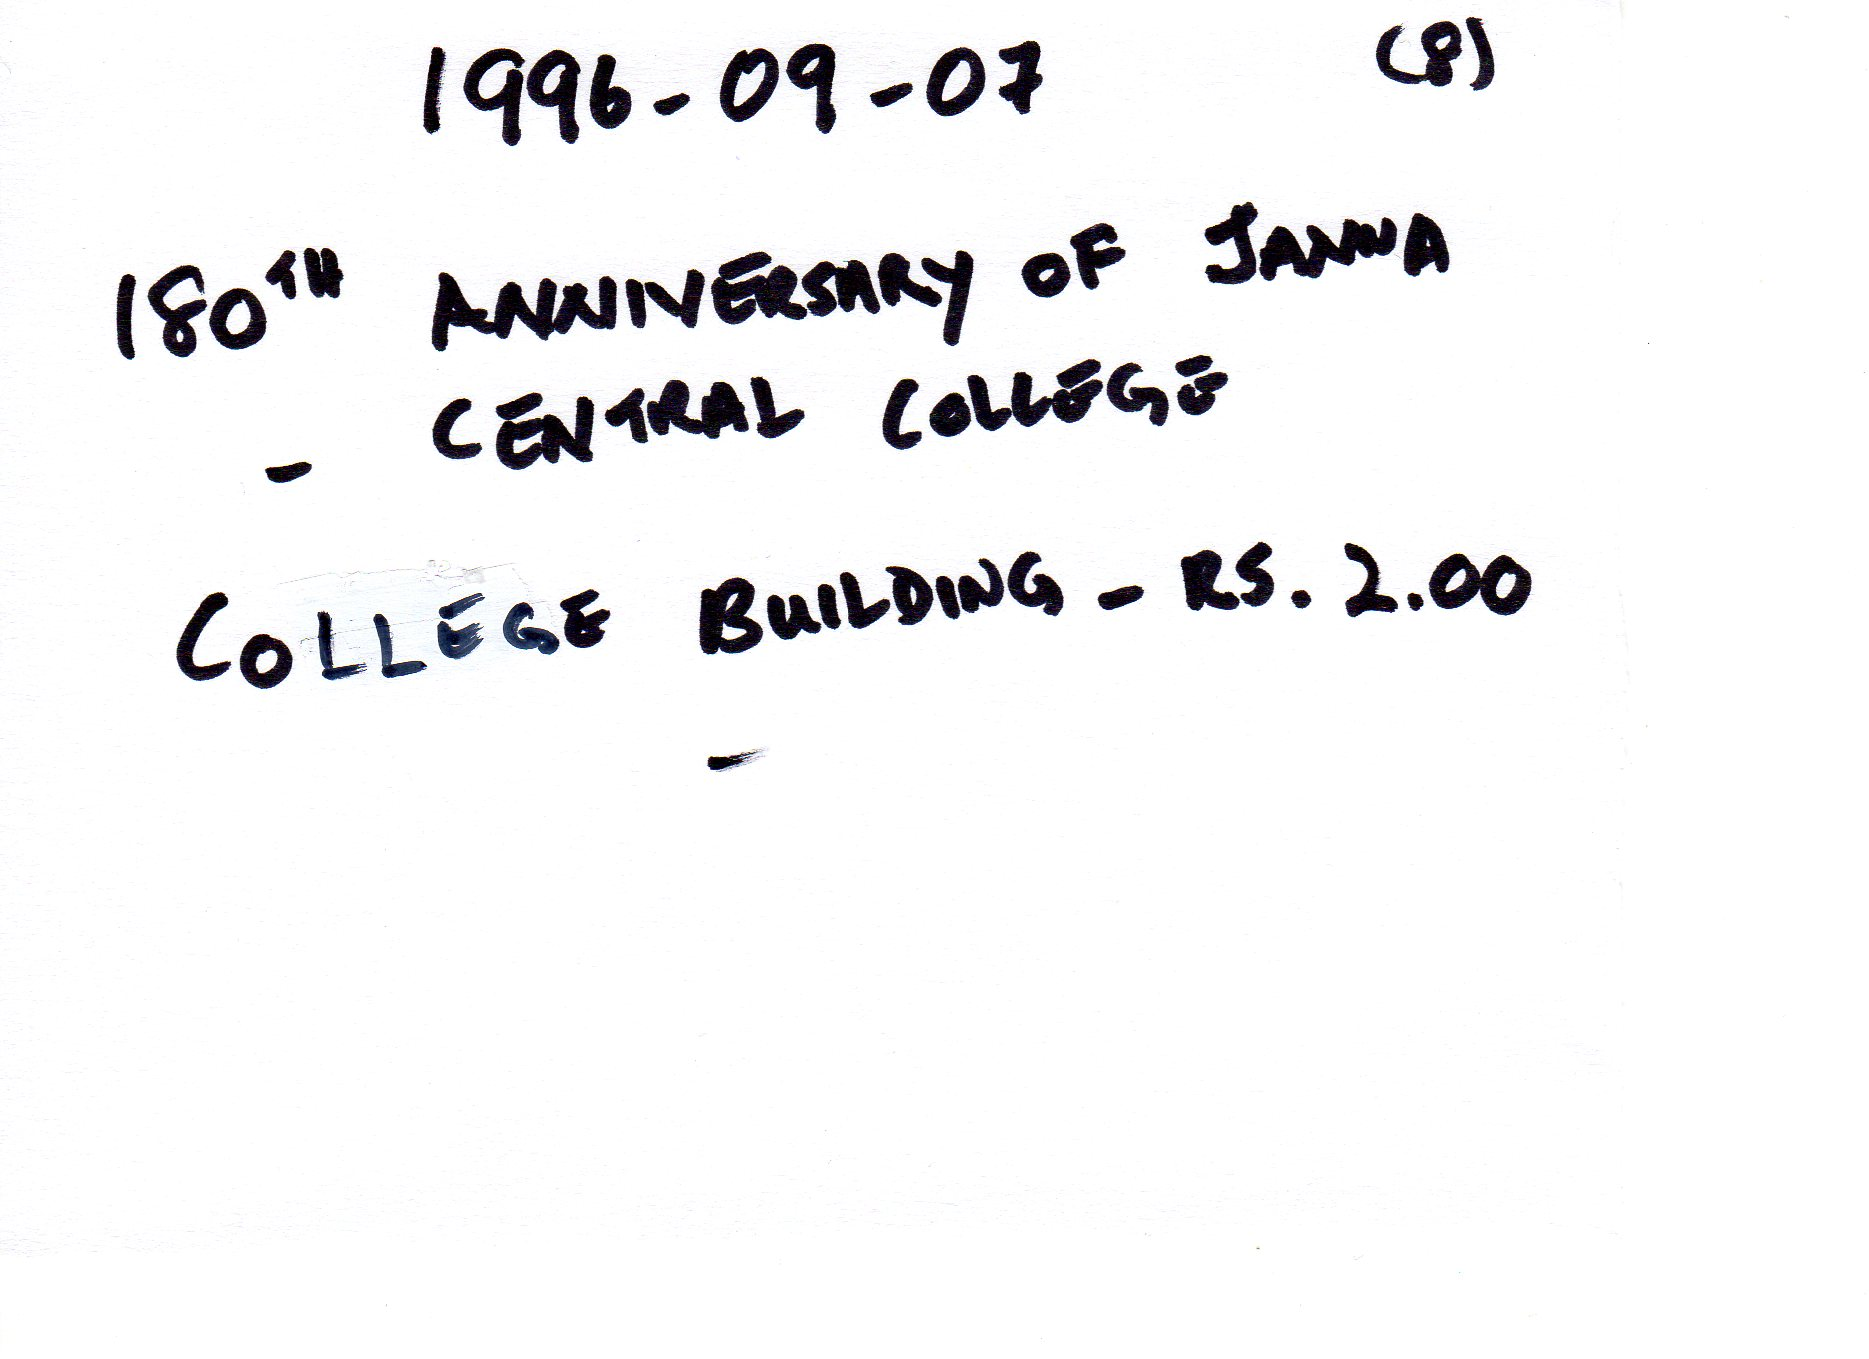 1996-09-07 (8)
180TH ANNIVERSARY OF JANNA
- CENTRAL COLLEGE
COLLEGE BUILDING - RS. 2.00
-